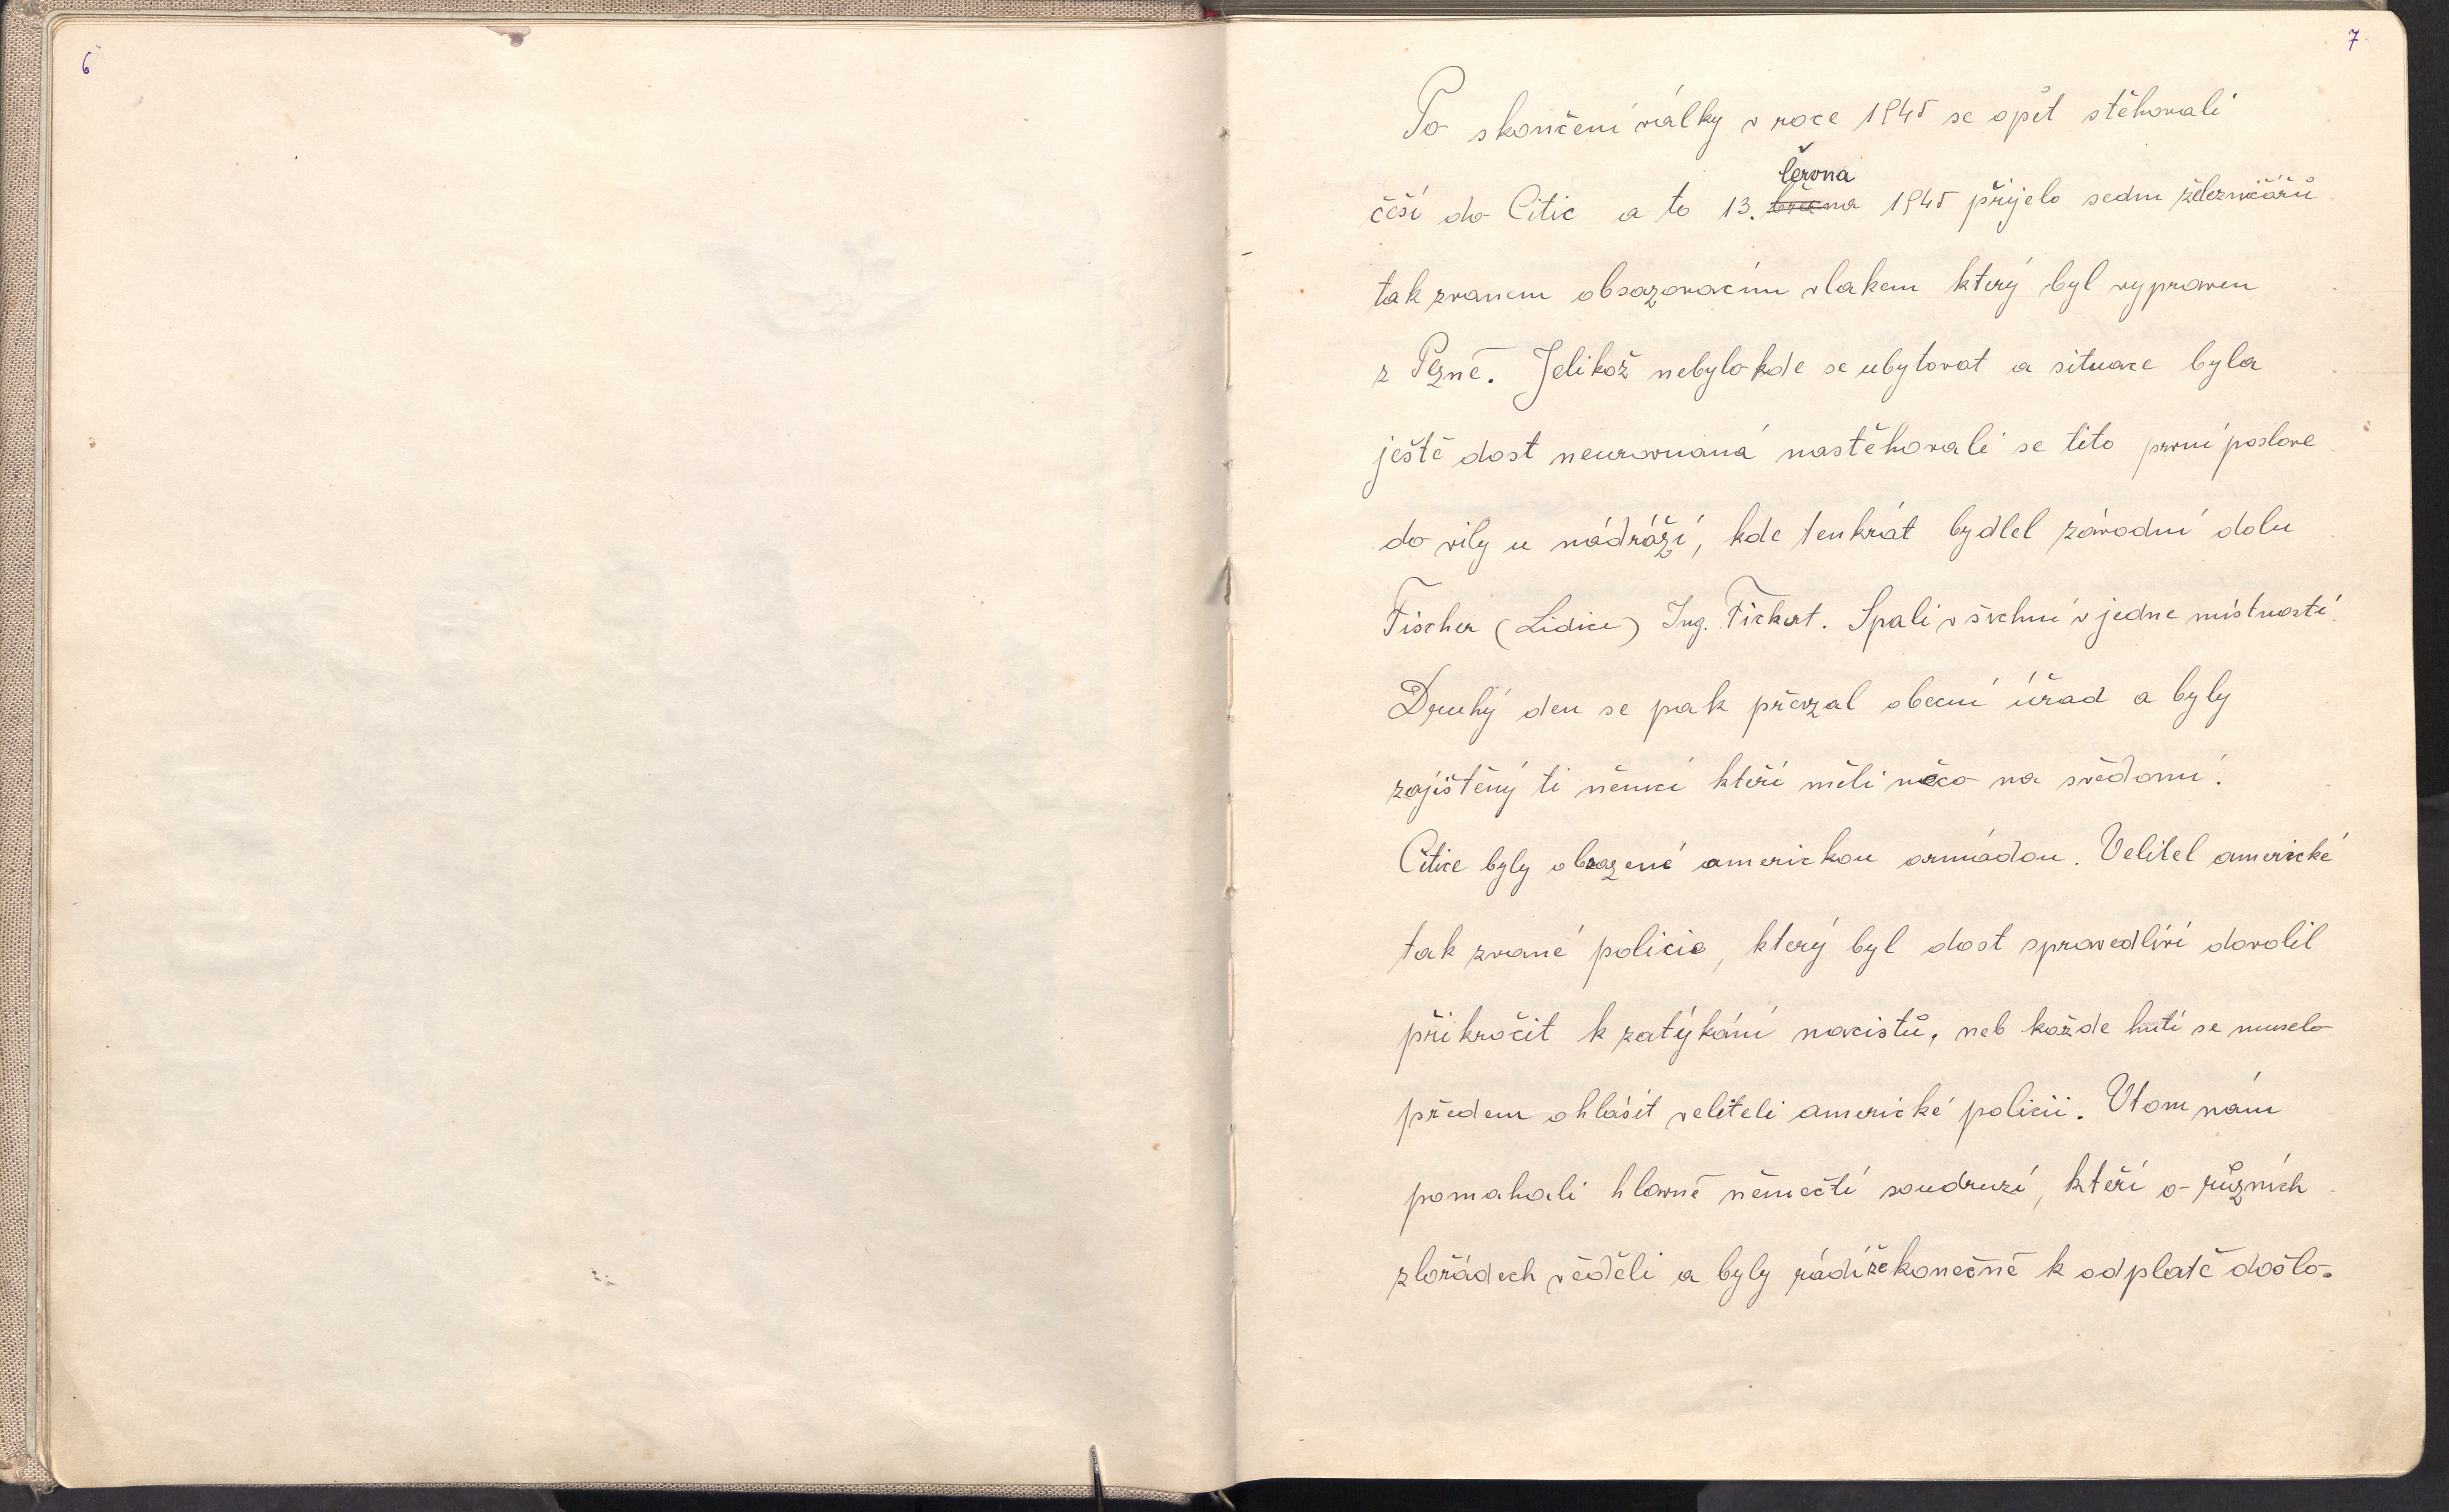 6
7
Po skončení války v roce 1945 se opět stěhovali
června
češi do Citic a to 13. března 1945 přijelo sedm železničářů
tak zvanem obsazovacím vlakem který byl vypraven
z Plzně. Jelikož nebylo kde se ubytovat a situace byla
ještě dost neurovnaná nastěhovali se tito první poslove
do vily u nádráží, kde tenkrát bydlel závodní dolu
Fischer (Lidice) Ing. Fickert. Spali všichni v jedne místnosti.
Druhý den se pak převzal obecní úřad a byly
zajištěný ti němci kteří měli něco na svědomí.
Citice byly obsazené americkou armádou. Velitel americké
tak zvané policie, který byl dost spravedliví dovolil
přikročit k zatýkání nacistů, neb každe hutí se muselo
předem ohlásit veliteli americké policii. Vtom nám
pomahali hlavně němečtí soudruzi, kteří o různích
zlořádech věděli a byly rádi že konečně k odplatě došlo.